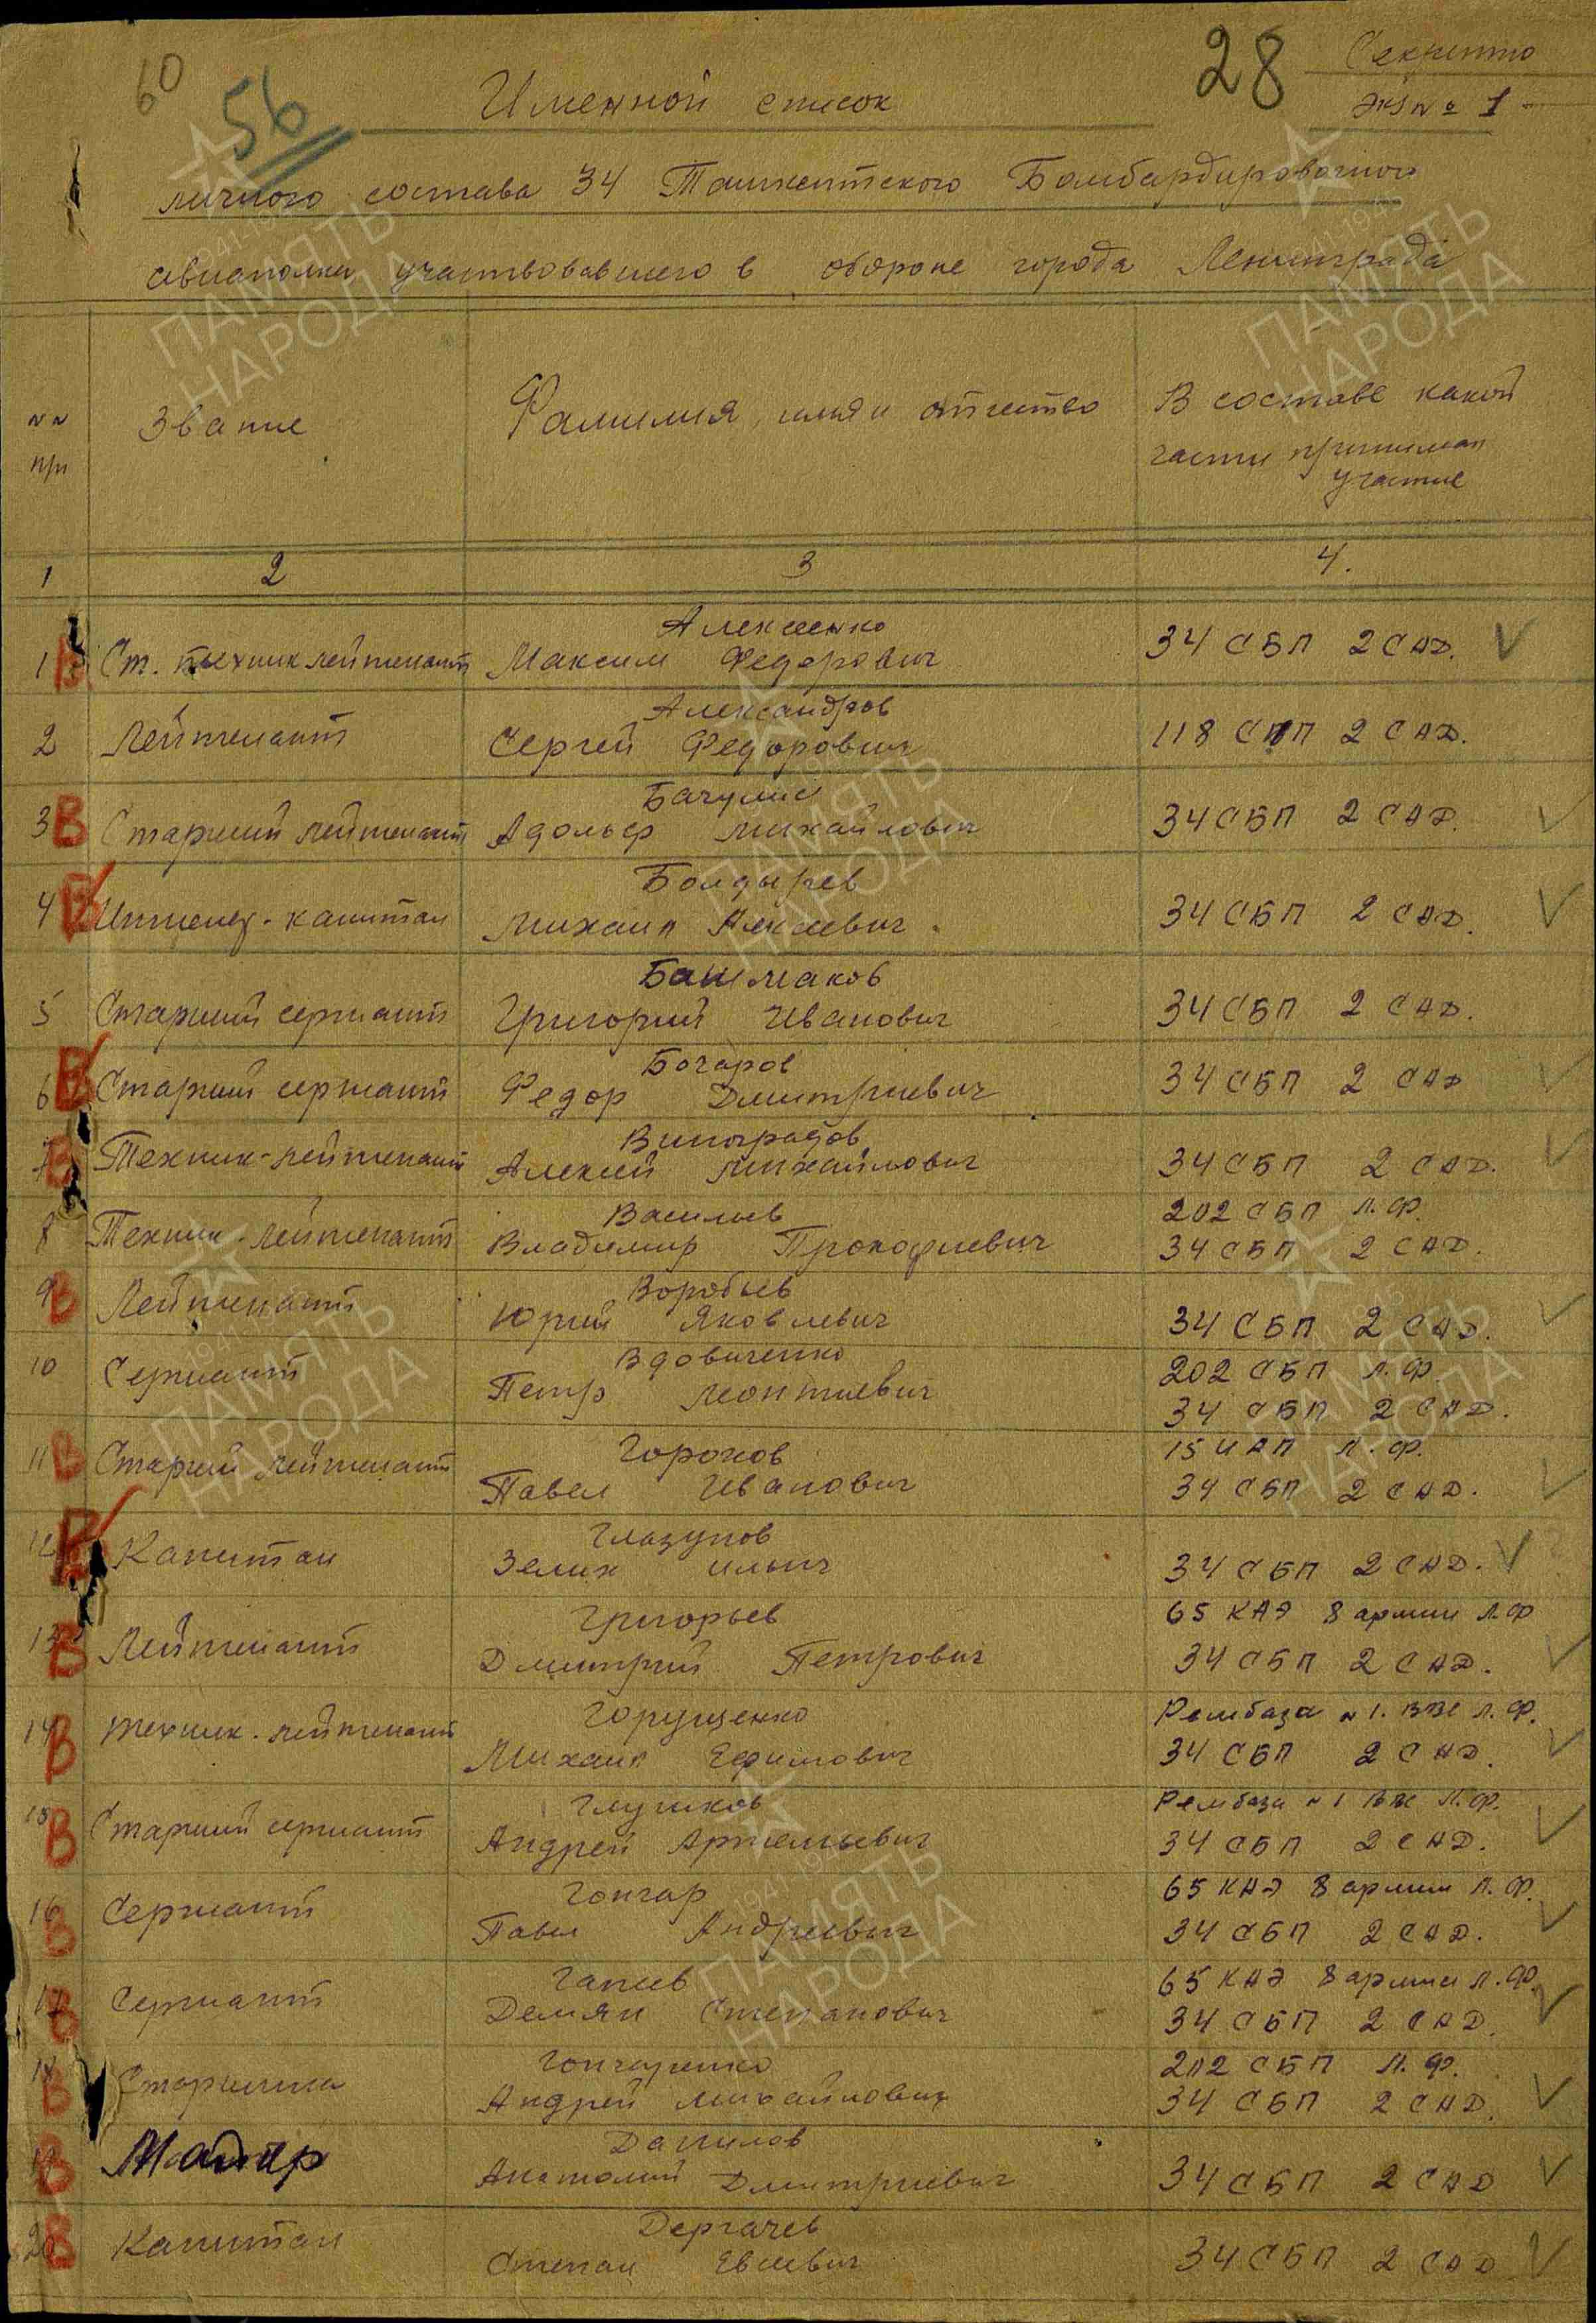 60
56
28
Секретно
Экз № 1
Именной список
личного состава 34 Ташкентского Бомбардировочного
авиаполка участвовавшего в обороне города Ленинграда
№№ п/п
Звание
Фамилия, имя и отчество
В составе какой части принимал участие
1 2 3 4.
Алексеенко
1 В Ст. техник лейтенант Максим Федорович 34 СБП 2 САД.
Александров
2 Лейтенант Сергей Федорович 118 СПП 2 САД.
3 В Старший лейтенант Адольф Михайлович 34 СБП 2 САД.
Болдырев
4 В Инженер-капитан Михаил Алексеевич 34 СБП 2 САД.
Башмаков
5 Старший сержант Григорий Иванович 34 СБП 2 САД.
Бочаров
6 В Старший сержант Федор Дмитриевич 34 СБП 2 САД
Виноградов
7 В Техник-лейтенант Алексей Михайлович 34 СБП 2 САД.
Васильев 202 СБП Л.Ф.
8 Техник-лейтенант Владимир Прокофиевич 34 СБП 2 САД.
Воробьев
9 В Лейтенант Юрий Яковлевич 34 СБП 2 САД.
Вдовиченко 202 СБП Л.Ф.
10 Сержант Петр Леонтиевич 34 СБП 2 САД.
Горохов 15 ИАП Л.Ф.
11 В Старший лейтенант Павел Иванович 34 СБП 2 САД.
Глазунов
12 В Капитан Зелих Ильич 34 СБП 2 САД.
Григорьев 65 КАЭ 8 армии Л.Ф
13 В Лейтенант Дмитрий Петрович 34 СБП 2 САД.
Горущенко Рембаза № 1. ВВС Л.Ф.
14 В техник-лейтенант Михаил Ефимович 34 СБП 2 САД.
Глушков Рембаза № 1 ВВС Л.Ф.
15 В Старший сержант Андрей Артемьевич 34 СБП 2 САД.
Гончар 65 КАЭ 8 армии Л.Ф.
16 В Сержант Павел Андреевич 34 СБП 2 САД.
Гапеев 65 КАЭ 8 армии Л.Ф.
17 В Сержант Демян Степанович 34 СБП 2 САД.
Гончаренко 202 СБП Л.Ф.
18 В Старшина Андрей Михайлович 34 СБП 2 САД.
Данилов
19 В Майор Анатолий Дмитриевич 34 СБП 2 САД
Дергачев
20 В Капитан Степан Евсеевич 34 СБП 2 САД
1941-1945
ПАМЯТЬ
НАРОДА